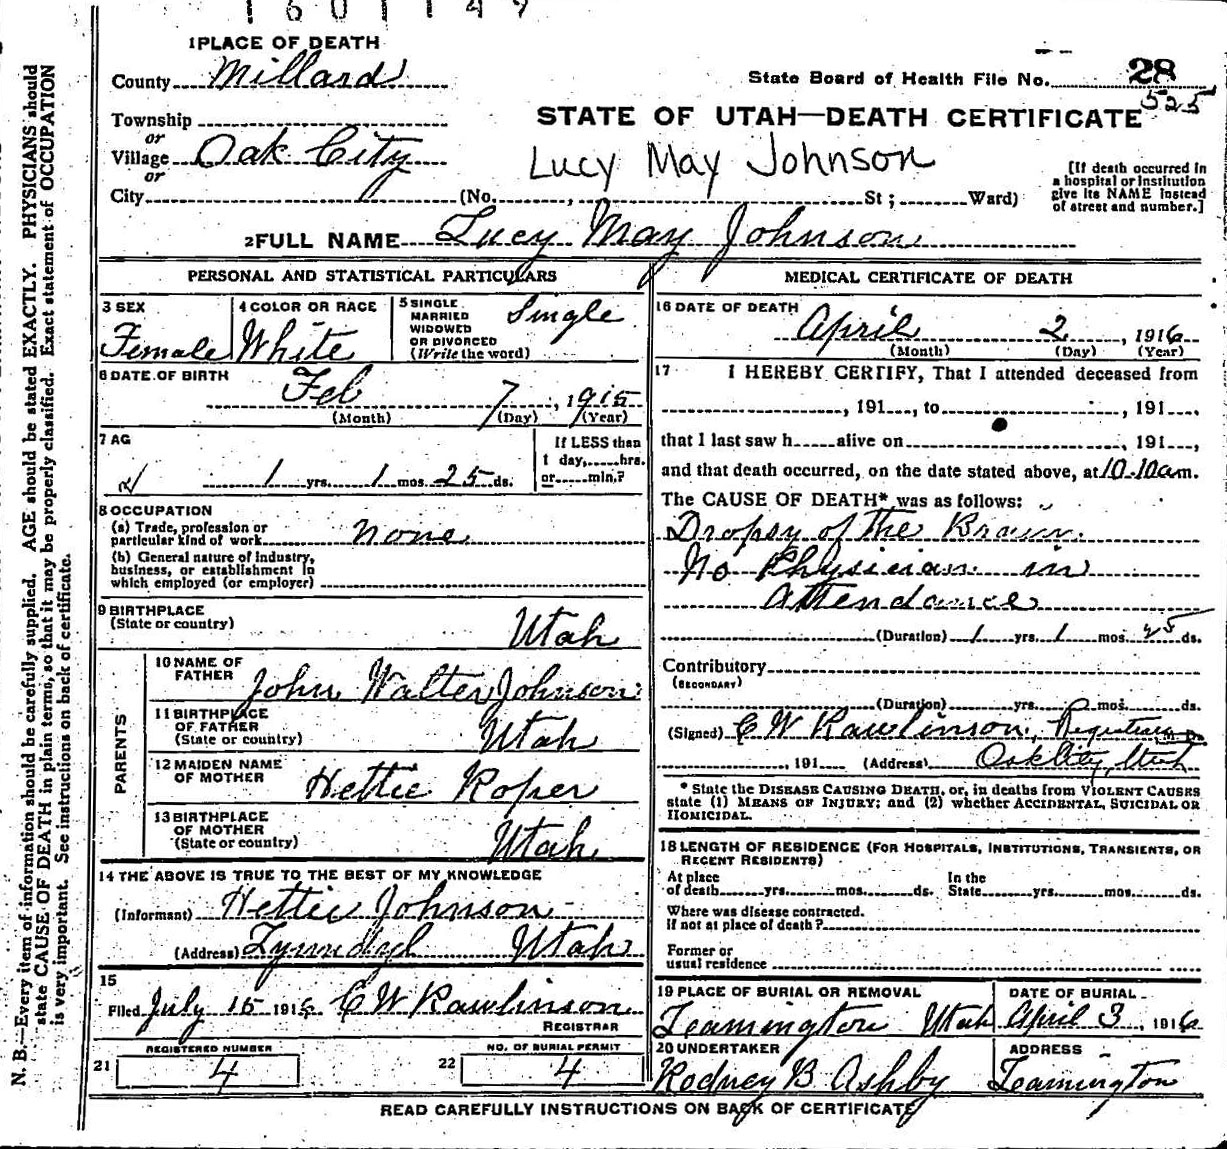 1601149
1 PLACE OF DEATH
County Millard
State Board of Health File No. 28
525
Township
or
STATE OF UTAH—DEATH CERTIFICATE
Village Oak City
or
Lucy May Johnson
[If death occurred in a hospital or institution give its NAME instead of street and number.]
City (No. , St ; Ward)
2 FULL NAME Lucy May Johnson
PERSONAL AND STATISTICAL PARTICULARS
3 SEX
Female
4 COLOR OR RACE
White
5 SINGLE
MARRIED
WIDOWED
OR DIVORCED
(Write the word)
Single
6 DATE OF BIRTH
Feb 7, 1915
(Month) (Day) (Year)
7 AG
1 yrs. 1 mos. 25 ds.
If LESS than
1 day, hrs.
or min.?
8 OCCUPATION
(a) Trade, profession or
particular kind of work none
(b) General nature of industry,
business, or establishment in
which employed (or employer)
9 BIRTHPLACE
(State or country)
Utah
PARENTS
10 NAME OF
FATHER
John Walter Johnson
11 BIRTHPLACE
OF FATHER
(State or country)
Utah
12 MAIDEN NAME
OF MOTHER
Hettie Roper
13 BIRTHPLACE
OF MOTHER
(State or country)
Utah
14 THE ABOVE IS TRUE TO THE BEST OF MY KNOWLEDGE
(Informant) Hettie Johnson
(Address) Lynndyl Utah
15
Filed July 15 1916 C W Rawlinson
REGISTRAR
REGISTERED NUMBER
21 4
NO. OF BURIAL PERMIT
22 4
MEDICAL CERTIFICATE OF DEATH
16 DATE OF DEATH
April 2, 1916
(Month) (Day) (Year)
17 I HEREBY CERTIFY, That I attended deceased from
, 191 , to , 191 ,
that I last saw h alive on , 191 ,
and that death occurred, on the date stated above, at 10.10 am.
The CAUSE OF DEATH* was as follows:
Dropsy of the Brain.
No Physician in
Attendance
(Duration) 1 yrs. 1 mos. 25 ds.
Contributory
(SECONDARY)
(Duration) yrs. mos. ds.
(Signed) C W Rawlinson, Registrar M. D.
, 191 (Address) Oak City, Utah
* State the DISEASE CAUSING DEATH, or, in deaths from VIOLENT CAUSES
state (1) MEANS OF INJURY; and (2) whether ACCIDENTAL, SUICIDAL OR
HOMICIDAL.
18 LENGTH OF RESIDENCE (FOR HOSPITALS, INSTITUTIONS, TRANSIENTS, OR
RECENT RESIDENTS)
At place
of death yrs. mos. ds.
In the
State yrs. mos. ds.
Where was disease contracted.
if not at place of death?
Former or
usual residence
19 PLACE OF BURIAL OR REMOVAL
Leamington Utah
DATE OF BURIAL
April 3, 1916
20 UNDERTAKER
Rodney B Ashby
ADDRESS
Leamington
READ CAREFULLY INSTRUCTIONS ON BACK OF CERTIFICATE
N. B.—Every item of information should be carefully supplied. AGE should be stated EXACTLY. PHYSICIANS should
state CAUSE OF DEATH in plain terms, so that it may be properly classified. Exact statement of OCCUPATION
is very important. See instructions on back of certificate.